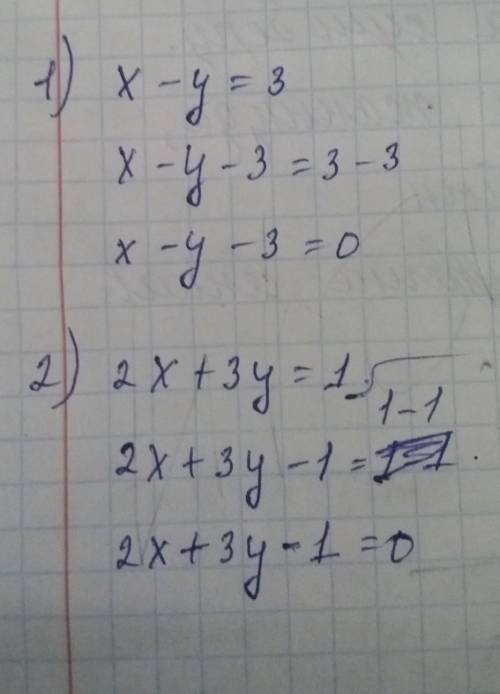 1) x - y = 3
x - y - 3 = 3 - 3
x - y - 3 = 0
2) 2x + 3y = 1
2x + 3y - 1 = 1-1
2x + 3y - 1 = 0